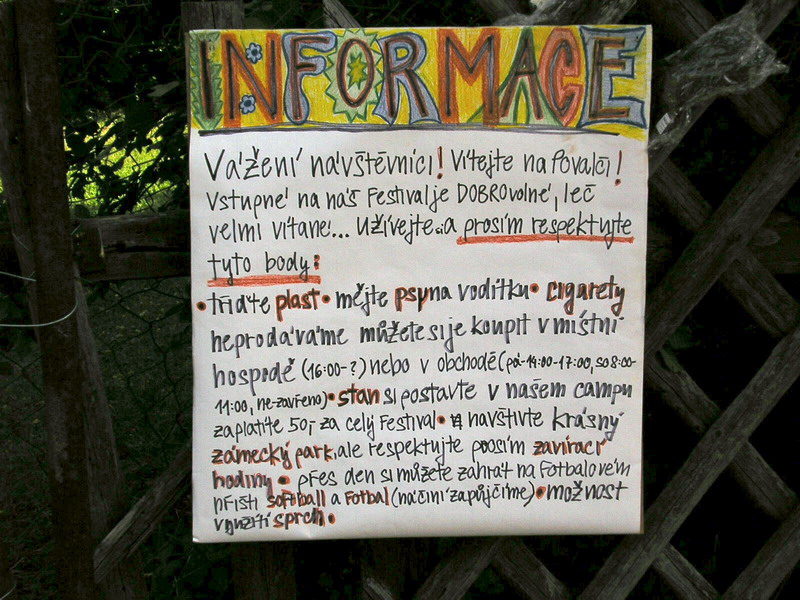 INFORMACE
Vážení návštěvníci! Vítejte na Povalči!
Vstupné na náš Festival je DOBROvolné, leč
velmi vítané!... Užívejte..a prosím respektujte
tyto body:
• třiďte plast • mějte psy na vodítku • cigarety
neprodáváme můžete si je koupit v místní
hospodě (16:00-?) nebo v obchodě (pá-14:00-17:00, so 8:00-
11:00, ne-zavřeno) • stan si postavte v našem campu
zaplatíte 50,- za celý Festival • navštivte krásný
zámecký park, ale respektujte prosím zavírací
hodiny • přes den si můžete zahrát na Fotbalovém
hřišti softball a Fotbal (náčiní zapůjčíme) • možnost
využití sprch •